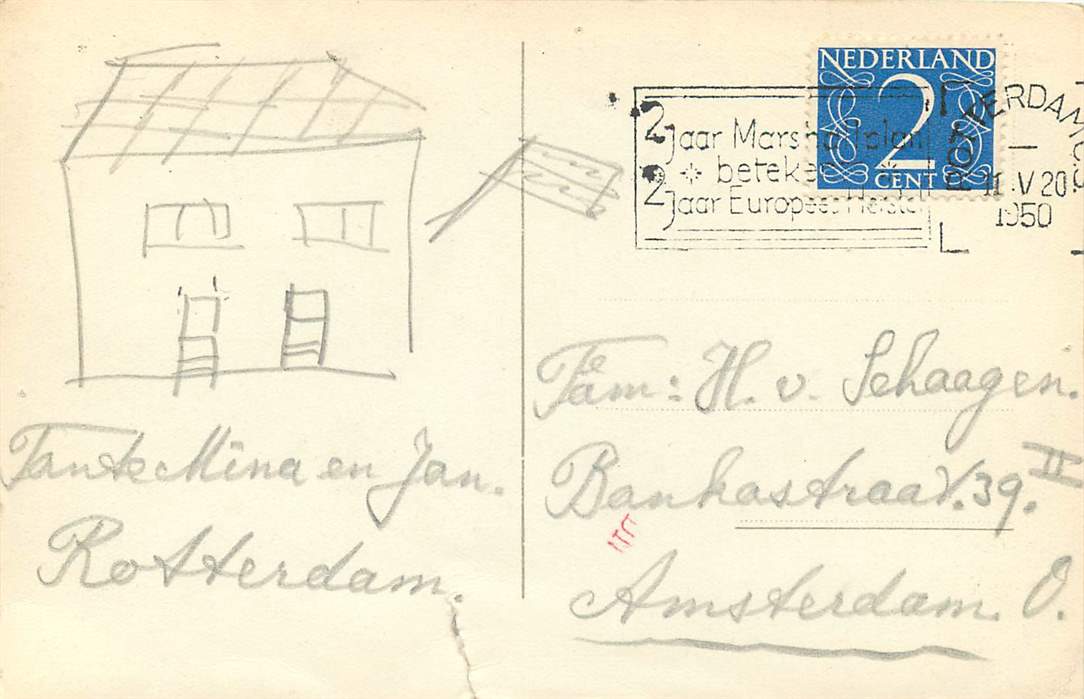 NEDERLAND
2
CENT
2 jaar Marshallplan
beteken
2 jaar Europees Herstel
ROTTERDAM C.S
V 20
1950
Fam: H. v. Schaagen.
Bankastraat. 39. II
Amsterdam. O.
Tante Mina en Jan.
Rotterdam.